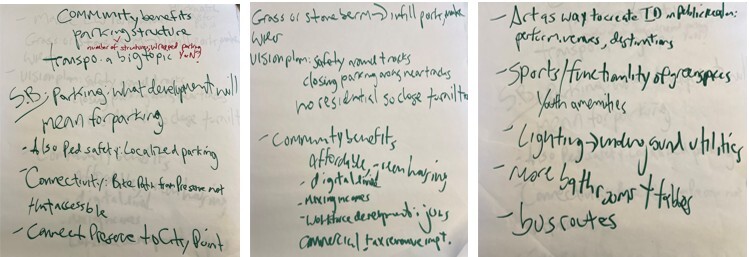 Community benefits
parking structure
number of structures, wrapped parking
transpo: a big topic
S.B: Parking: what development will
mean for parking
- Also Ped safety: Localized parking
- Connectivity: Bike Path from Preserve not
that accessible
- Connect Preserve to City Point
Grass or stone berm → infill park, make
wider
Vision plan: safety around tracks
closing parking along near tracks
no residential so close to rail
- Community benefits
affordable, housing
- digital
- mixing incomes
- workforce development: jobs
commercial tax revenue impt.
- Act as way to create ID in public realm:
park, venues, destinations
- Sports/functionality of greenspaces
Youth amenities
- Lighting → underground utilities
- more bathrooms + tables
- bus routes